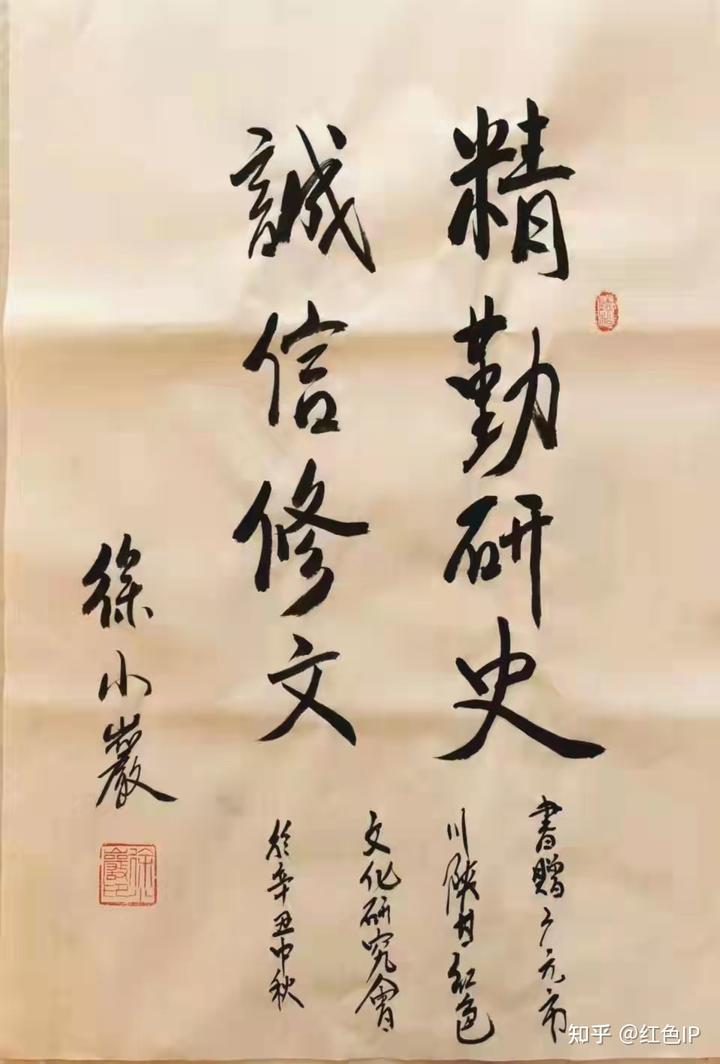 精勤研史
誠信修文
書贈广元市
川陕甘红色
文化研究會
於辛丑中秋
徐小巖
知乎 @红色IP